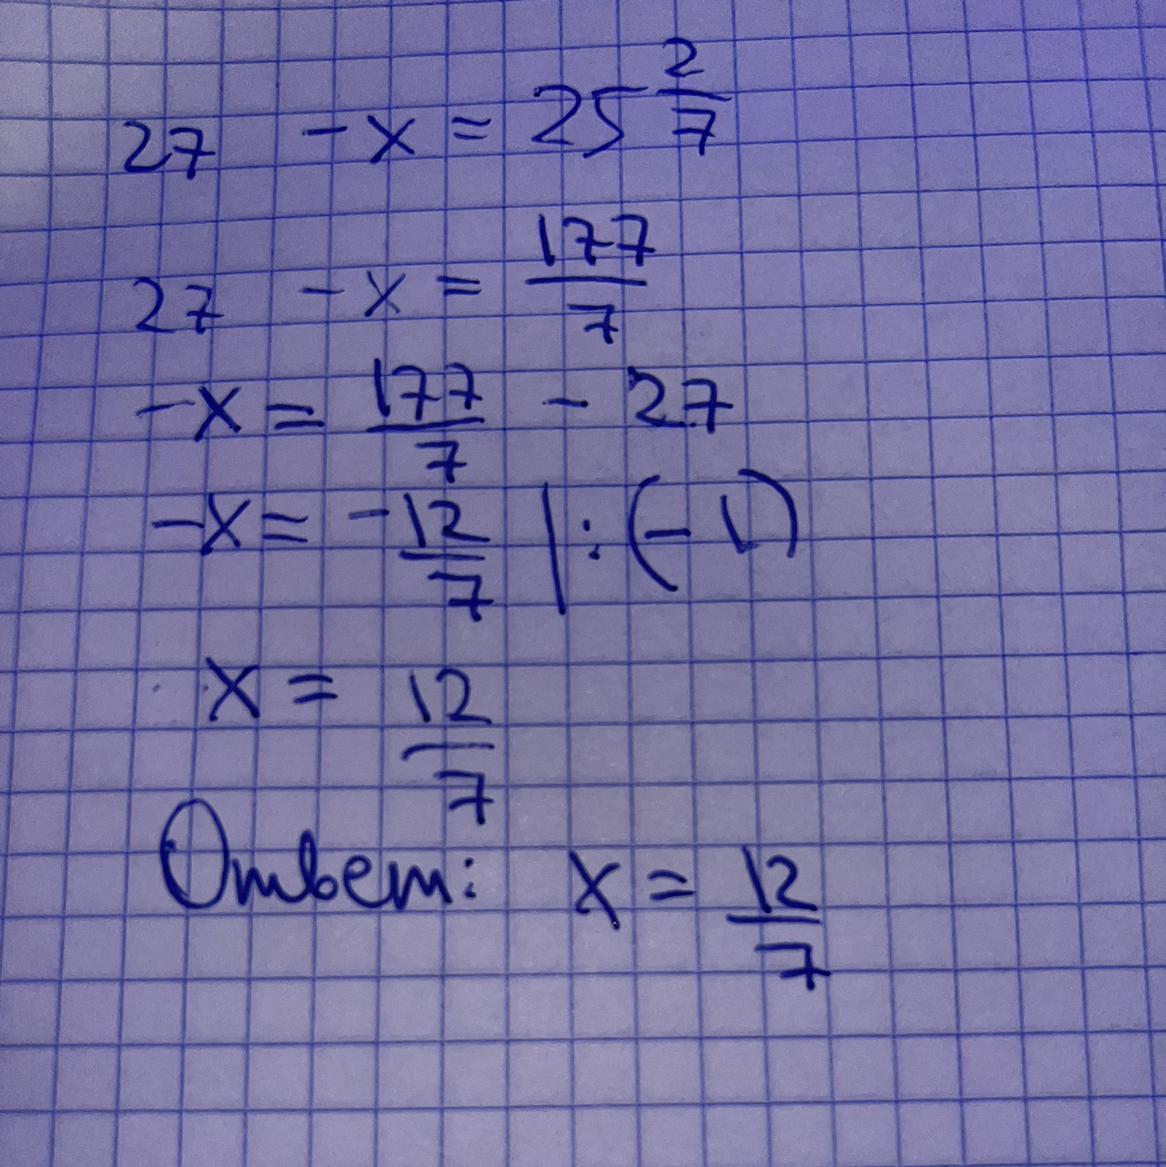 27 - x = 25 2/7
27 - x = 177/7
-x = 177/7 - 27
-x = -12/7 | : (-1)
x = 12/7
Ответ: x = 12/7